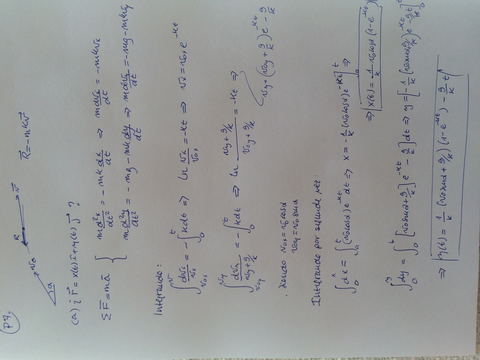 P7.
R⃗ = -mkv⃗
R⃗ v⃗₀ α
(a) ¿ r⃗ = x(t) i⃗ + y(t) j⃗ ?
ΣF⃗ = ma⃗ { m d²x/dt² = -mk dx/dt ⇒ m dvx/dt = -mkvx
m d²y/dt² = -mg - mk dy/dt ⇒ m dvy/dt = -mg - mkvy
Integrando:
∫ dvx/vx = -∫₀ᵗ kdt ⇒ ln vx/v₀x = -kt ⇒ vx = v₀x e^-kt
∫ dvy/(vy + g/k) = -∫₀ᵗ kdt ⇒ ln (vy + g/k)/(v₀y + g/k) = -kt ⇒
vy = (v₀y + g/k) e^-kt - g/k
siendo v₀x = v₀ cosα
v₀y = v₀ senα
Integrando por segunda vez:
∫₀ˣ dx = ∫₀ᵗ (v₀ cosα) e^-kt dt ⇒ x = -1/k (v₀ cosα) e^-kt ]₀ᵗ ⇒
⇒ x(t) = 1/k v₀ cosα (1 - e^-kt)
∫₀ʸ dy = ∫₀ᵗ [(v₀ senα + g/k) e^-kt - g/k] dt ⇒ y = [-1/k (v₀ senα + g/k) e^-kt - g/k t]₀ᵗ
⇒ y(t) = 1/k (v₀ senα + g/k) (1 - e^-kt) - g/k t